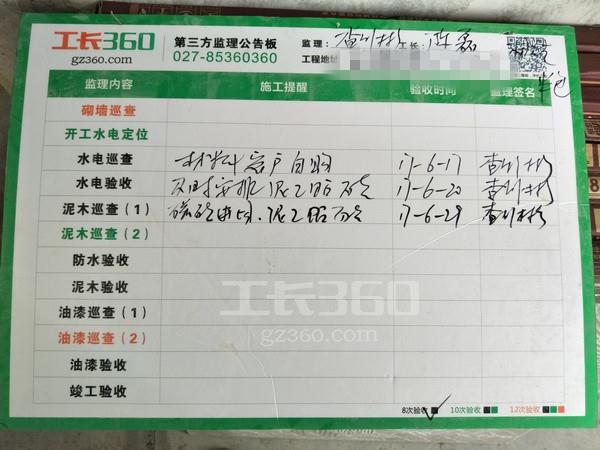 工长360
gz360.com
第三方监理公告板
027-85360360
监理： 工长：
工程地址
半包
监理内容 施工提醒 验收时间 监理签名
砌墙巡查
开工水电定位
水电巡查 材料客户自购 17-6-17
水电验收 及时安排泥工贴瓦砖 17-6-20
泥木巡查（1） 泥工贴瓦砖 17-6-29
泥木巡查（2）
防水验收
泥木验收
油漆巡查（1）
油漆巡查（2）
油漆验收
竣工验收
工长360
gz360.com
8次验收 10次验收 12次验收